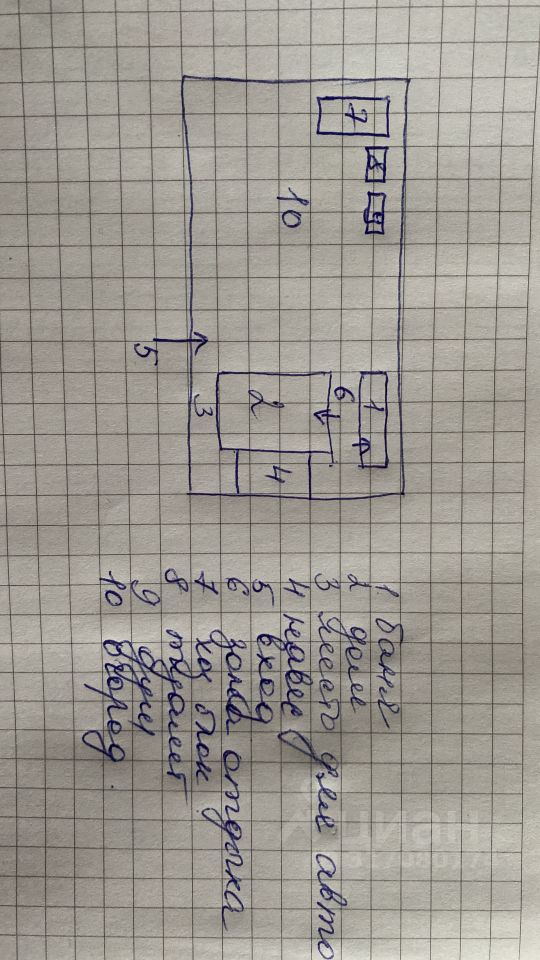 7
8
9
10
5
3
2
6
1
4
1 баня
2 дом
3 место для авто
4 навес
5 вход
6 зона отдыха
7 хоз блок
8 туалет
9 душ
10 огород